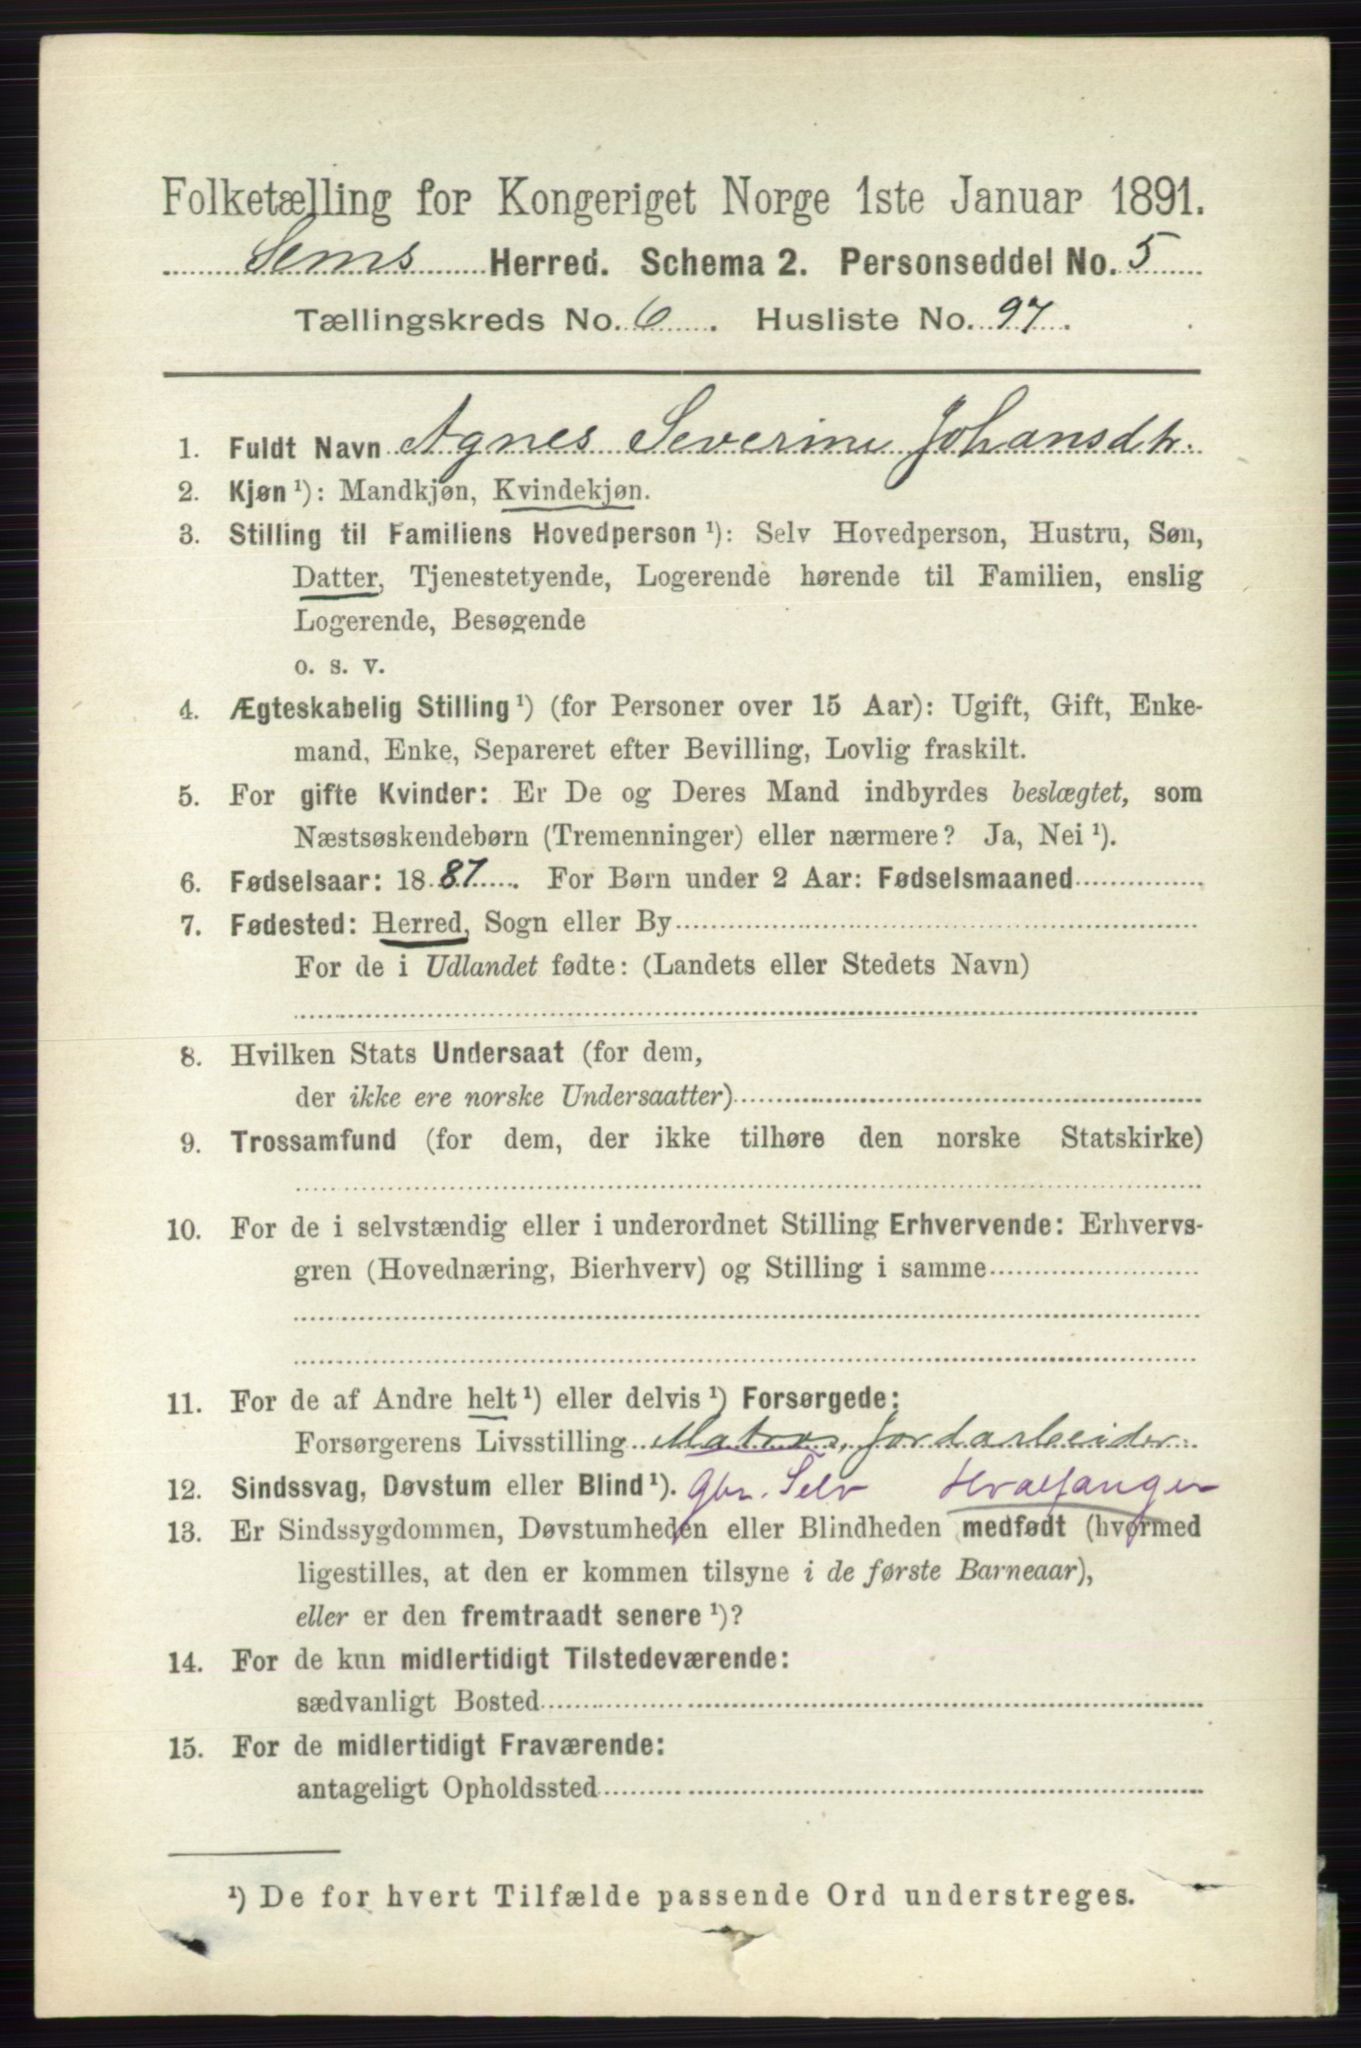 Folketælling for Kongeriget Norge 1ste Januar 1891.
Sems Herred. Schema 2. Personseddel No. 5
Tællingskreds No. 6. Husliste No. 97.
1. Fuldt Navn Agnes Severine Johansdtr.
2. Kjøn ¹): Mandkjøn, Kvindekjøn.
3. Stilling til Familiens Hovedperson ¹): Selv Hovedperson, Hustru, Søn,
Datter, Tjenestetyende, Logerende hørende til Familien, enslig
Logerende, Besøgende
o. s. v.
4. Ægteskabelig Stilling ¹) (for Personer over 15 Aar): Ugift, Gift, Enke-
mand, Enke, Separeret efter Bevilling, Lovlig fraskilt.
5. For gifte Kvinder: Er De og Deres Mand indbyrdes beslægtet, som
Næstsøskendebørn (Tremenninger) eller nærmere? Ja, Nei ¹).
6. Fødselsaar: 1887. For Børn under 2 Aar: Fødselsmaaned
7. Fødested: Herred, Sogn eller By
For de i Udlandet fødte: (Landets eller Stedets Navn)
8. Hvilken Stats Undersaat (for dem,
der ikke ere norske Undersaatter)
9. Trossamfund (for dem, der ikke tilhøre den norske Statskirke)
10. For de i selvstændig eller i underordnet Stilling Erhvervende: Erhvervs-
gren (Hovednæring, Bierhverv) og Stilling i samme
11. For de af Andre helt ¹) eller delvis ¹) Forsørgede:
Forsørgerens Livsstilling Matros, Jordarbeider
12. Sindssvag, Døvstum eller Blind ¹). Gbr. Selv Hvalfanger
13. Er Sindssygdommen, Døvstumheden eller Blindheden medfødt (hvormed
ligestilles, at den er kommen tilsyne i de første Barneaar),
eller er den fremtraadt senere ¹)?
14. For de kun midlertidigt Tilstedeværende:
sædvanligt Bosted
15. For de midlertidigt Fraværende:
antageligt Opholdssted
¹) De for hvert Tilfælde passende Ord understreges.